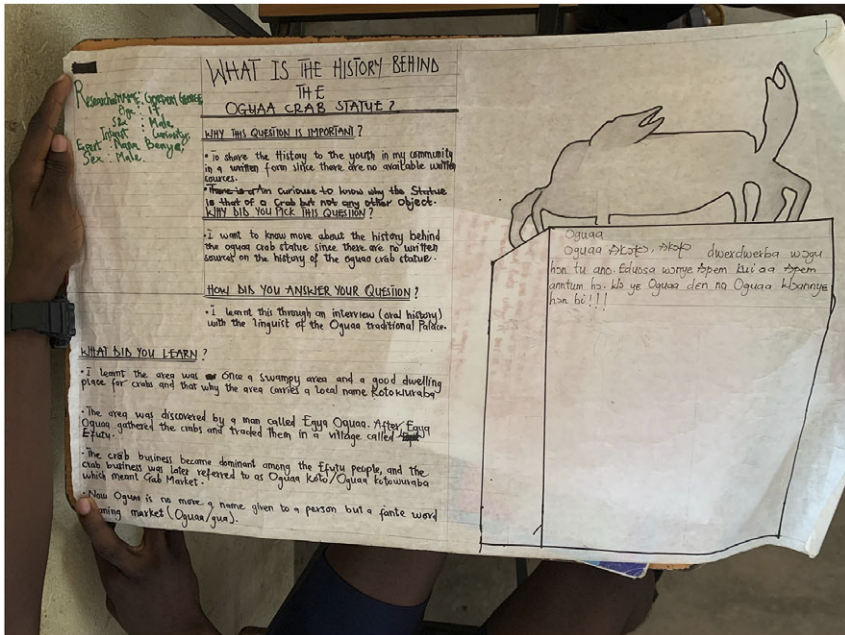 Researcher NAME: GORDON GEORGE
Age : 17
Sex : Male
Interest : Curiosity
Expert : Nana Benyai
Sex : Male.
WHAT IS THE HISTORY BEHIND
THE
OGUAA CRAB STATUE?
WHY THIS QUESTION IS IMPORTANT?
• To share the History to the youth in my community
in a written form since there are no available written
sources.
• Am Curiouse to know why the Statue
is that of a Crab but not any other object.
WHY DID YOU PICK THIS QUESTION?
• I want to know more about the history behind
the oguaa crab statue since there are no written
source on the history of the oguaa crab statue.
HOW DID YOU ANSWER YOUR QUESTION?
• I learnt this through an interview (oral history)
with the linguist of the Oguaa traditional Palace.
WHAT DID YOU LEARN?
• I learnt the area was once a swampy area and a good dwelling
place for crabs and that why the area carries a local name Kotowuraba
• The area was discovered by a man called Egya Oguaa. After, Egya
Oguaa gathered the crabs and traded them in a village called
Efutu.
• The crab business became dominant among the Efutu people, and the
crab business was later referred to as Oguaa Koto/Oguaa kotowuraba
which meant Crab Market.
• Now Oguaa is no more a name given to a person but a fante word
meaning market (Oguaa/gua).
Oguaa
Oguaa Akɔtɔ, Akɔtɔ dwerdwerba wɔgu
hɔn tu ano. Eduosa wɔnye Apem kui aa Apem
anntum hɔ. ye Oguaa den na Oguaa
hɔn bi!!!